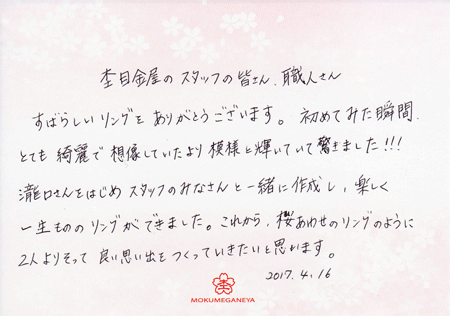 杢目金屋のスタッフの皆さん、職人さん
すばらしいリングをありがとうございます。初めてみた瞬間、
とても綺麗で想像していたより模様と輝いていて驚きました!!!
瀧口さんをはじめスタッフのみなさんと一緒に作成し、楽しく
一生もののリングができました。これから、桜あわせのリングのように
2人よりそって良い思い出をつくっていきたいと思います。
2017.4.16
MOKUMEGANEYA